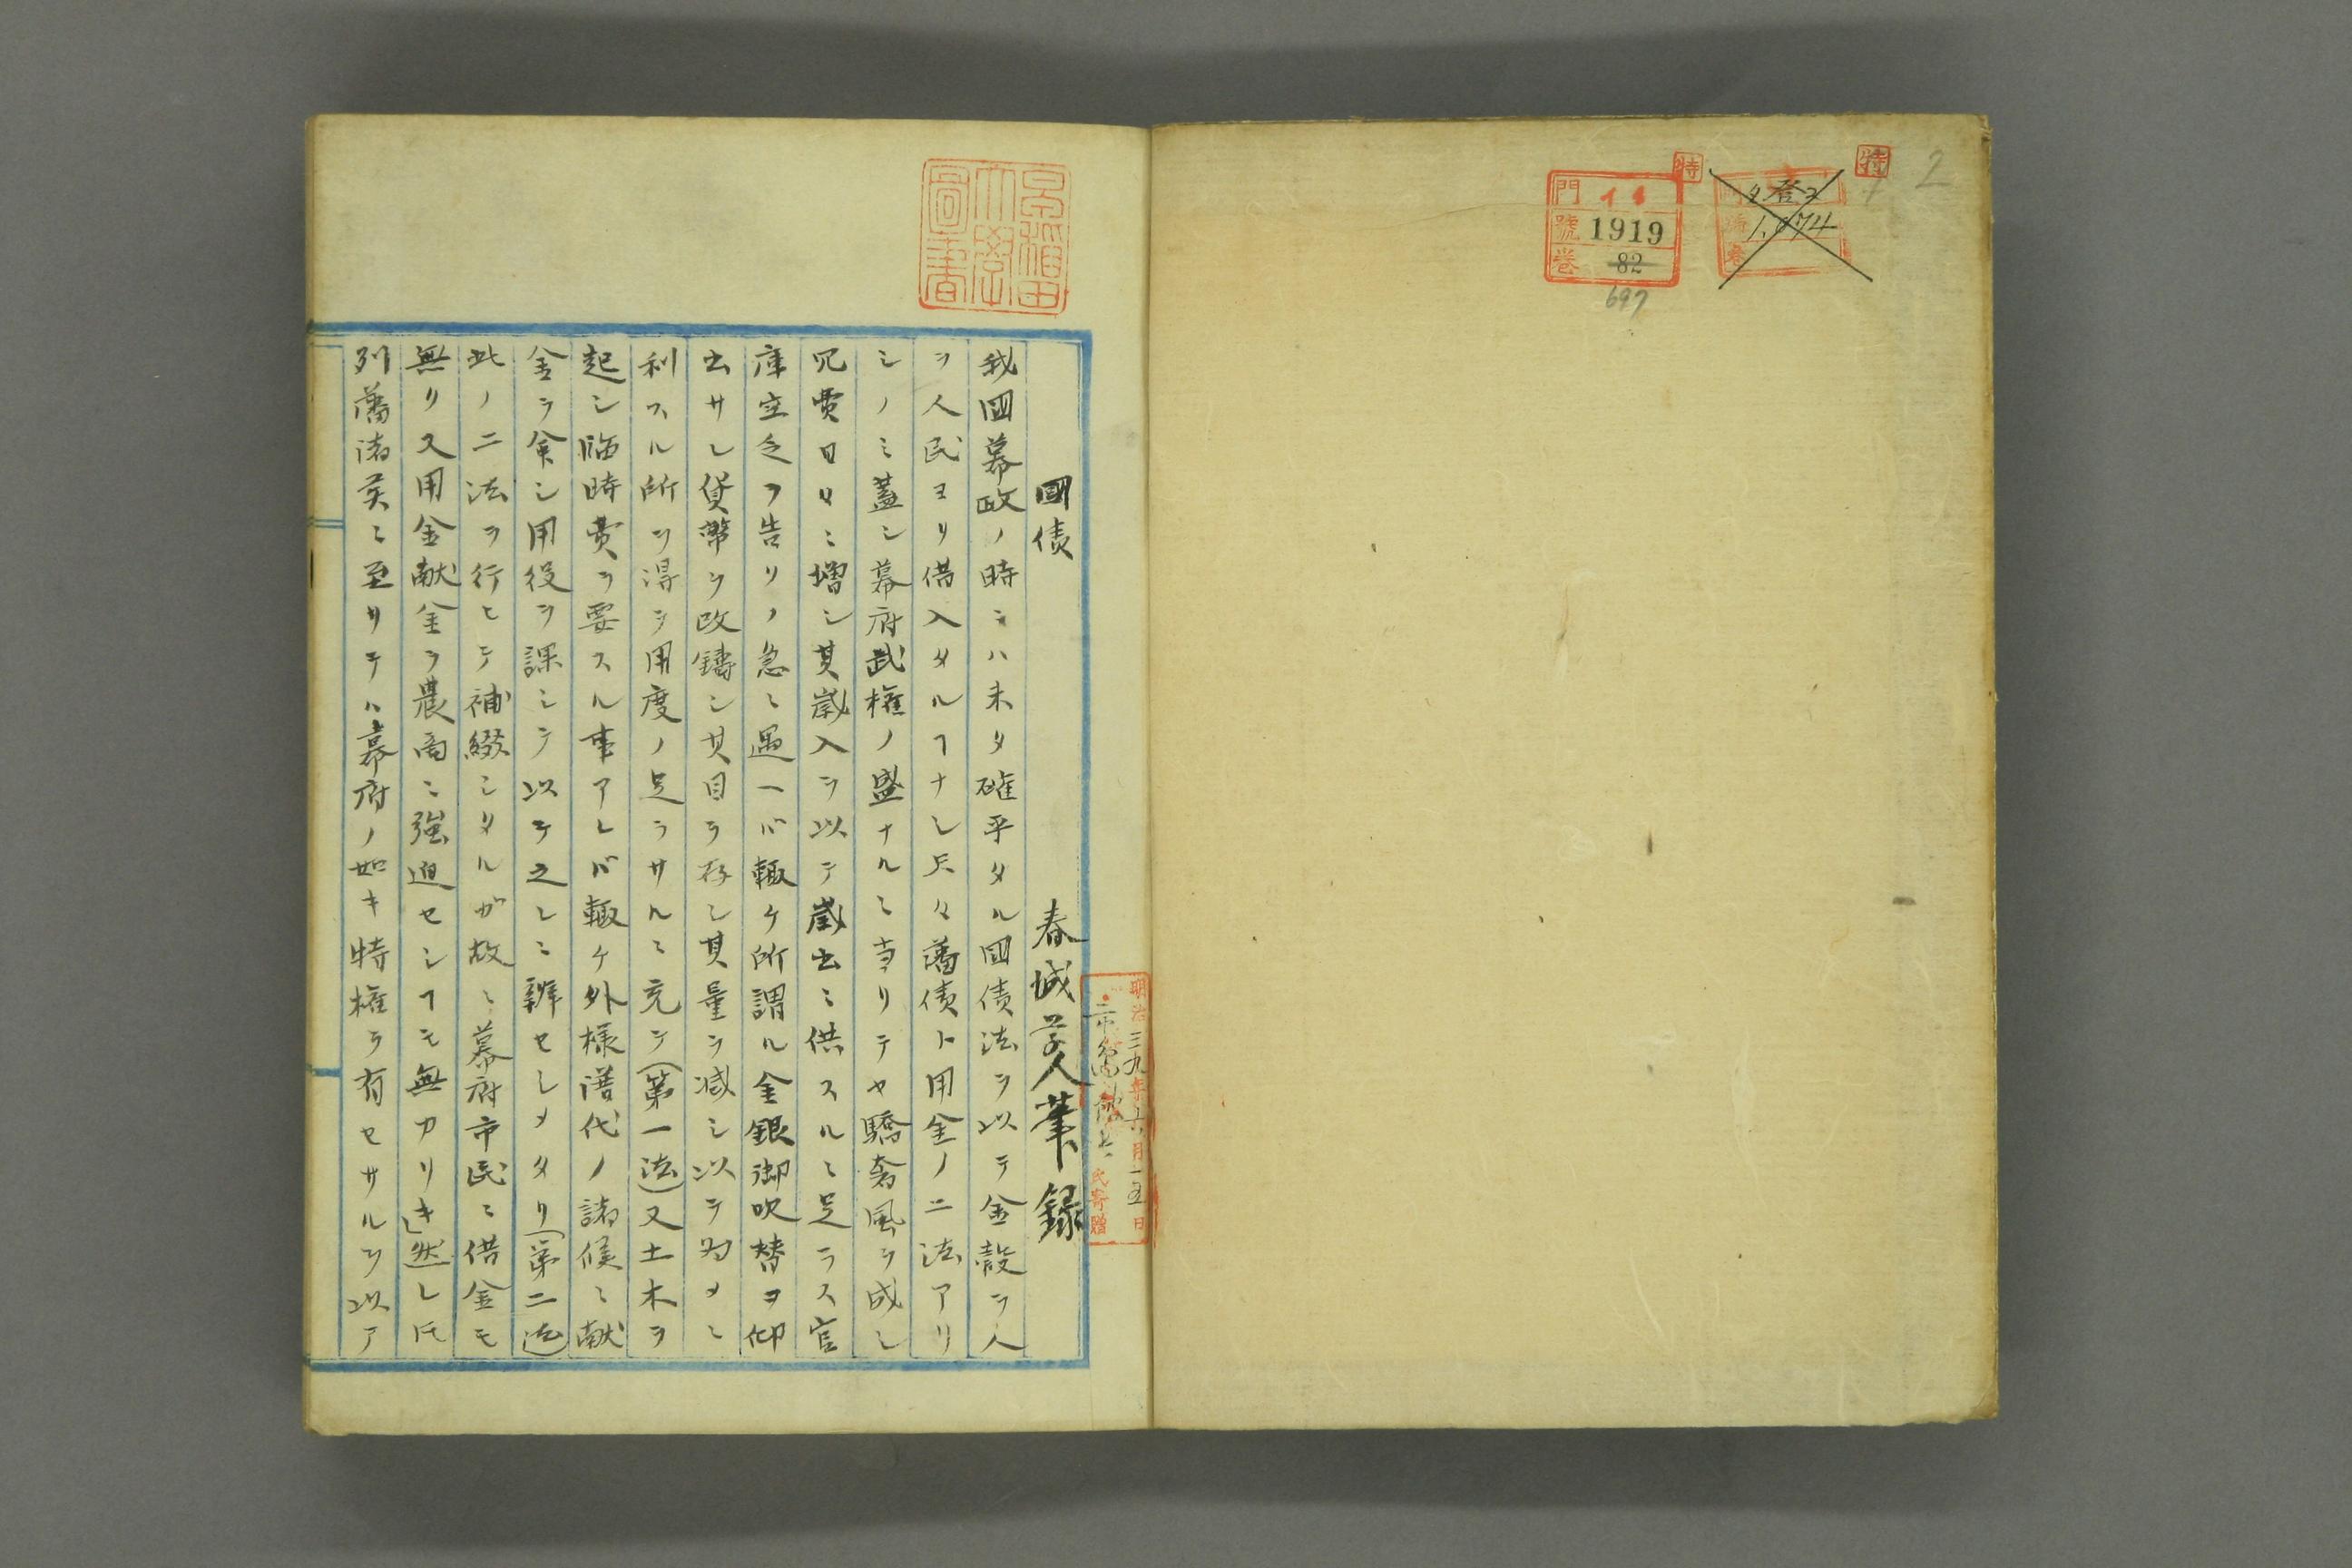 特
門 イ4
號 1919
巻 82
697
特
2
タ登2
1,674
早稲田
大學
圖書
明治三九年六月一五日
氏寄贈
國債
春城学人筆録
我國幕政ノ時ニハ未タ確乎タル國債法ヲ以テ金穀ヲ人
ヲ人民ヨリ借入タルヿナシ只々藩債ト用金ノ二法アリ
シノミ蓋シ幕府武權ノ盛ナルニ方リテヤ驕奢風ヲ成シ
冗費日々ニ増シ其歳入ヲ以テ歳出ニ供スルニ足ラス官
庫空乏ヲ告リノ急ニ遇ヘバ輙ケ所謂ル金銀御吹替ヲ仰
出サレ貨幣ヲ改鑄シ其目ヲ存シ其量ヲ減シ以テ為メニ
利スル所ヲ得テ用度ノ足ラサルニ充テ(第一法)又土木ヲ
起シ臨時費ヲ要スル事アレバ輙ケ外様譜代ノ諸候ニ献
金ヲ命シ用役ヲ課シテ以テ之レニ辨セシメタリ(第二法)
此ノ二法ヲ行ヒテ補綴シタルガ故ニ幕府市民ニ借金モ
無リ又用金献金ヲ農商ニ強迫セシヿモ無カリキ然レ𪜈
列藩諸矦ニ至リテハ幕府ノ如キ特權ヲ有セサルヲ以テ